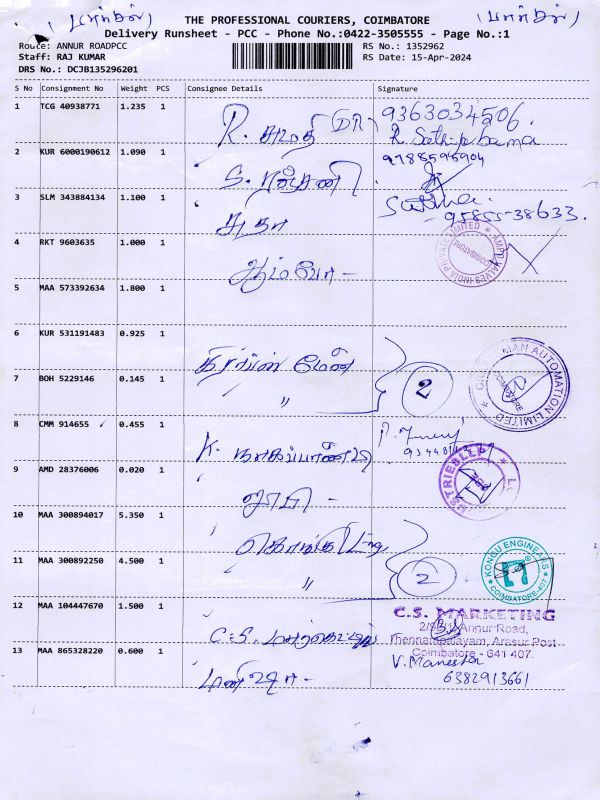 THE PROFESSIONAL COURIERS, COIMBATORE
Delivery Runsheet - PCC - Phone No.:0422-3505555 - Page No.:1
Route: ANNUR ROADPCC RS No.: 1352962
Staff: RAJ KUMAR RS Date: 15-Apr-2024
DRS No.: DCJB135296201
S No Consignment No Weight PCS Consignee Details Signature
1 TCG 40938771 1.235 1
9363034506
R. சுமதி (DR) R. Sathip bama
2 KUR 6000190612 1.090 1
9788596904
3 SLM 343884134 1.100 1
சுதா
95855-38633.
4 RKT 9603635 1.000 1
AMPO VALVES INDIA PRIVATE LIMITED COIMBATORE
ஆம்போ -
5 MAA 573392634 1.800 1
6 KUR 531191483 0.925 1
கிராப்ஸ் மேன்
MAN AUTOMATION LIMITED
7 BOH 5229146 0.145 1
〃 2
8 CMM 914655 0.455 1
K. நாகப்பாண்டி
9 AMD 28376006 0.020 1
10 MAA 300894017 5.350 1
கொங்கு Eng
KONGU ENGINEERS COIMBATORE-407
11 MAA 300892250 4.500 1
〃 2
12 MAA 104447670 1.500 1
C.S. MARKETING
2/81, Annur Road,
Thennampalayam, Arasur Post
Coimbatore - 641 407.
C.S. மார்க்கெட்டிங்
13 MAA 865328220 0.600 1
V. Manesha
6382913661
மனிஷா -